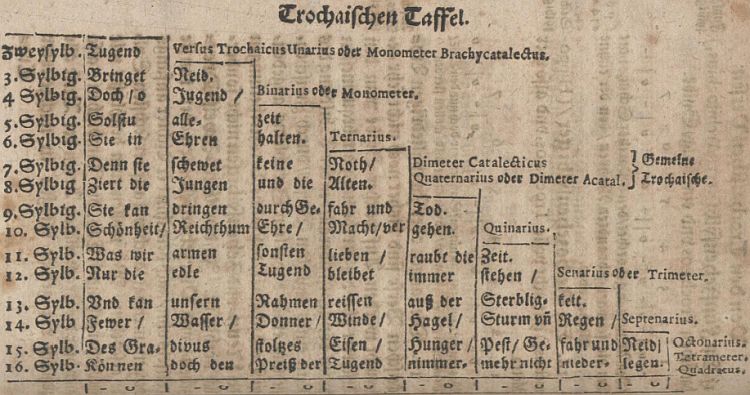 Trochaischen Taffel.
Zweysylb. Tugend Versus Trochaicus Unarius oder Monometer Brachycatalectus.
3. Sylbig. Bringet Neid.
4 Sylbtg. Doch / o Jugend / Binarius oder Monometer.
5. Sylbtg. Solstu alle- zeit
6. Sylbtg. Sie in Ehren halten. Ternarius.
7. Sylbtg. Denn sie schewet keine Noth / Dimeter Catalecticus } Gemeine
8 Sylbtg. Ziert die Jungen und die Alten. Quaternarius oder Dimeter Acatal. } Trochaische.
9. Sylbtg. Sie kan dringen durch Ge- fahr und Tod.
10. Sylb. Schönheit / Reichthum Ehre / Macht / ver gehen. Quinarius.
11. Sylb. Was wir armen sonsten lieben / raubt die Zeit.
12. Sylb. Nur die edle Tugend bleibet immer stehen / Senarius oder Trimeter.
13. Sylb. Vnd kan unsern Nahmen reissen auß der Sterblig- keit.
14. Sylb. Fewer / Wasser / Donner / Winde / Hagel / Sturm uñ Regen / Septenarius.
15. Sylb. Des Gra- divus stoltzes Eisen / Hunger / Pest / Ge- fahr und Neid Octonarius.
Tetrameter.
16. Sylb. Können doch den Preiß der Tugend nimmer- mehr nicht nieder- legen. Quadratus.
- ᴗ - ᴗ - ᴗ - ᴗ - ᴗ - ᴗ - ᴗ - ᴗ